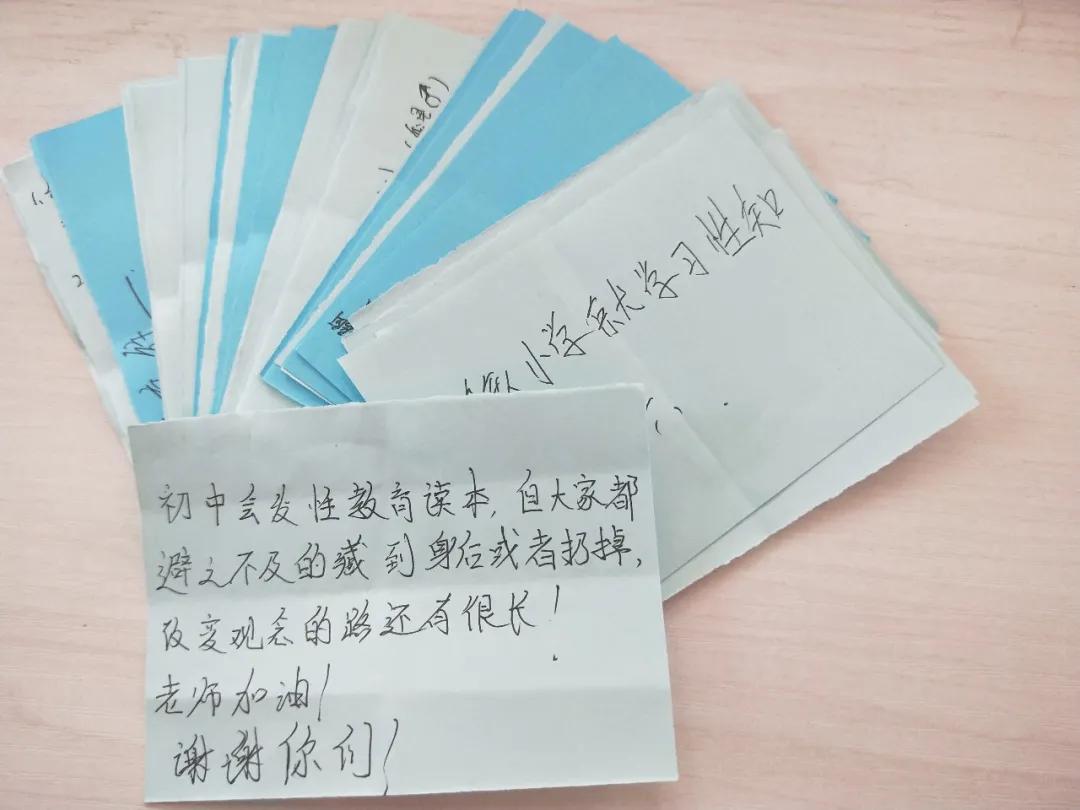 小学 学习性知
初中会发性教育读本,但大家都
避之不及的藏到身后或者扔掉,
改变观念的路还有很长!
老师加油!
谢谢你们!